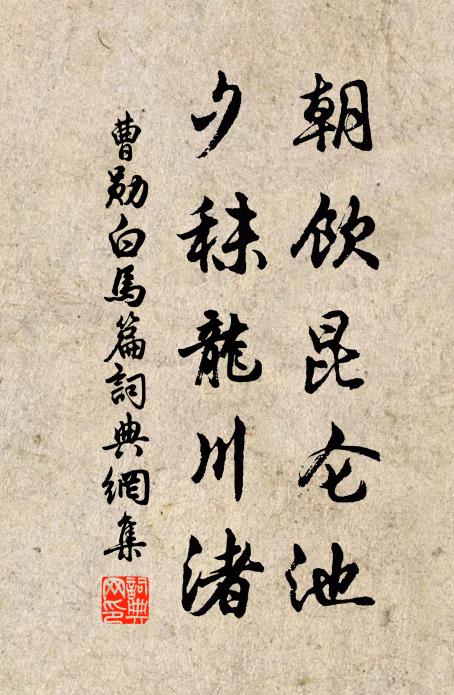 朝飲昆仑池
夕秣龍川渚
曹勛白馬篇詞典網集
詞典網印